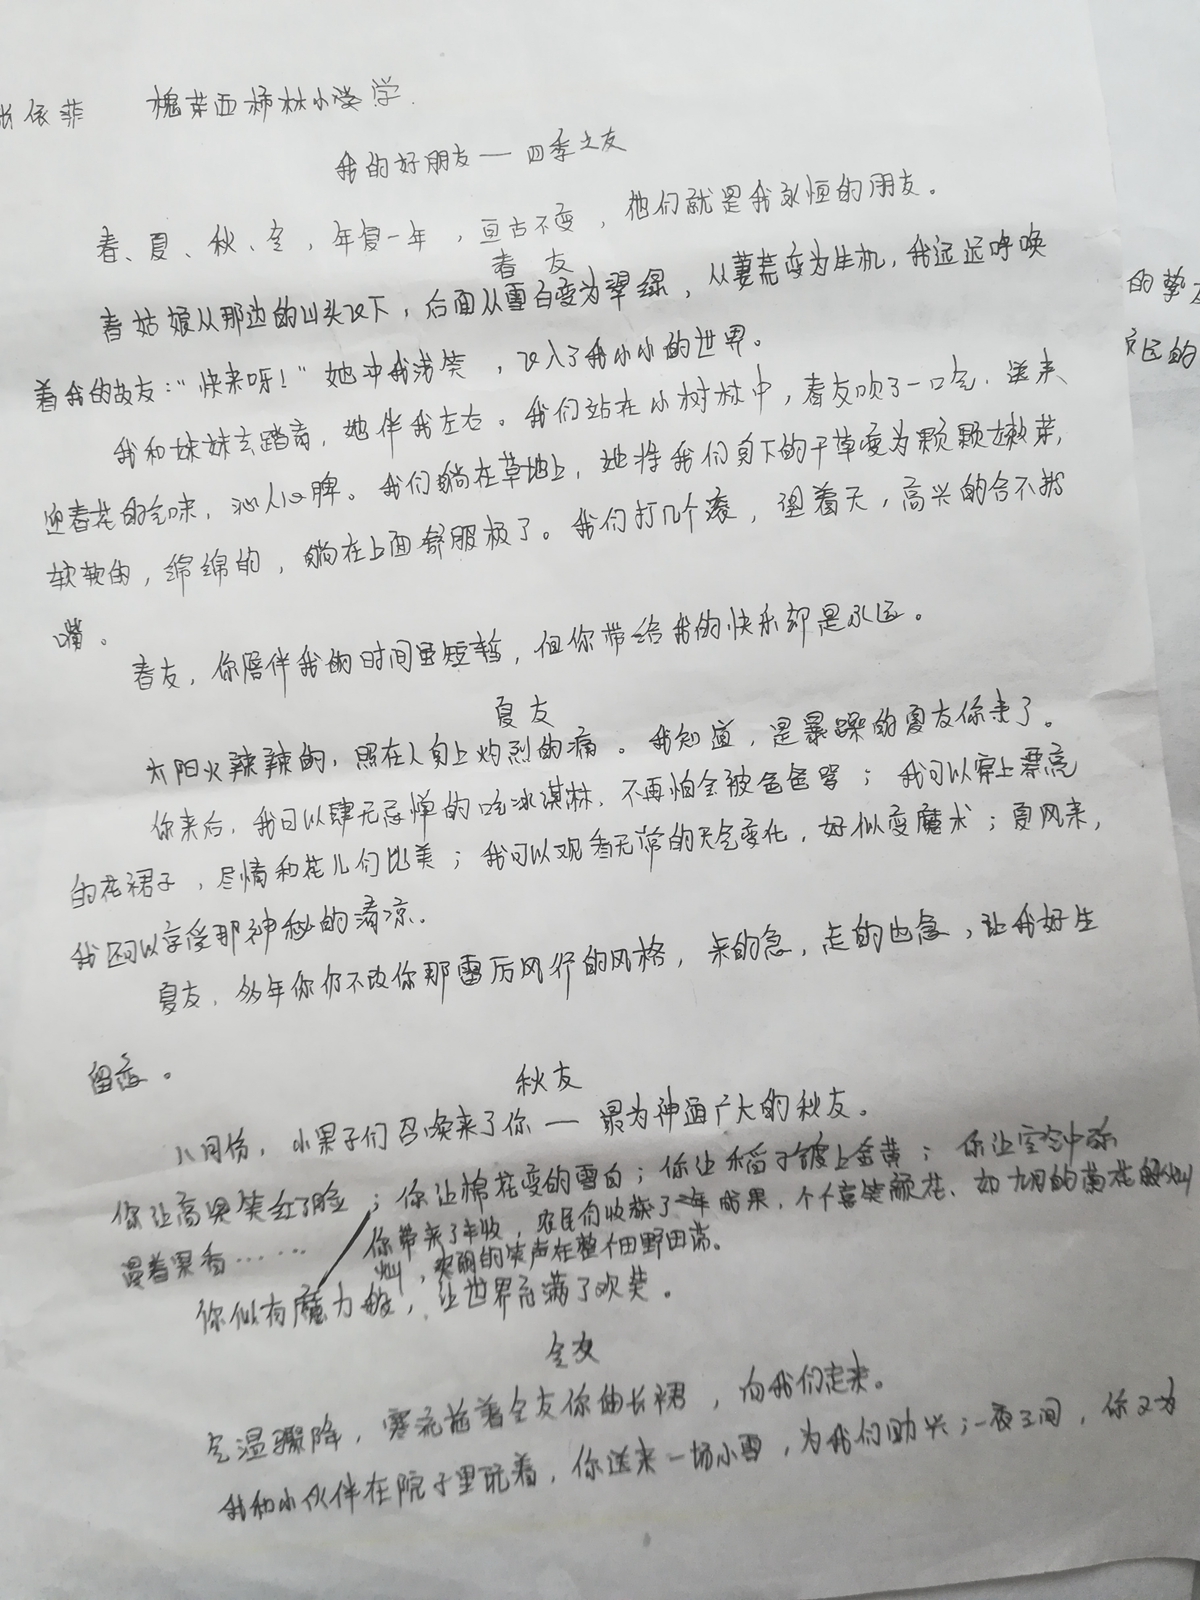 依菲 槐芽西柿林小学
我的好朋友——四季之友
春、夏、秋、冬，年复一年，亘古不变，他们就是我永恒的朋友。
春友
春姑娘从那边的山头以下，后面从雪白变为翠绿，从萋荒变为生机，我远远呼唤
着我的故友：“快来呀！”她冲我浅笑，以入了我小小的世界。
我和妹妹去踏青，她伴我左右。我们站在小树林中，春友吹了一口气，送来
迎春花的气味，沁人心脾。我们躺在草地上，她将我们身下的干草变为颗颗嫩芽，
软软的，绵绵的，躺在上面舒服极了。我们打几个滚，望着天，高兴的合不拢
嘴。
春友，你陪伴我的时间虽短暂，但你带给我的快乐却是永远。
夏友
太阳火辣辣的，照在人身上灼烈的痛。我知道，是暴躁的夏友你来了。
你来后，我可以肆无忌惮的吃冰淇淋，不再怕会被爸爸骂；我可以穿上漂亮
的花裙子，尽情和花儿们比美；我可以观看无常的天气变化，好似变魔术；夏风来，
我还可以享受那神秘的清凉。
夏友，多年你仍不改你那雷厉风行的风格，来的急，走的也急，让我好生
留恋。
秋友
八月份，小果子们召唤来了你——最为神通广大的秋友。
你让高粱笑红了脸；你让棉花变的雪白；你让稻子镀上金黄；你让空气中弥
漫着果香……
你带来了丰收，农民们收获了一年的果，个个喜笑颜花、如九月的菊花般灿
灿，爽朗的笑声在整个田野回荡。
你似有魔力般，让世界充满了欢笑。
冬友
气温骤降，寒流拖着冬友你曲长裙，向我们走来。
我和小伙伴在院子里玩着，你送来一场小雪，为我们助兴；一夜之间，你又为
的挚友